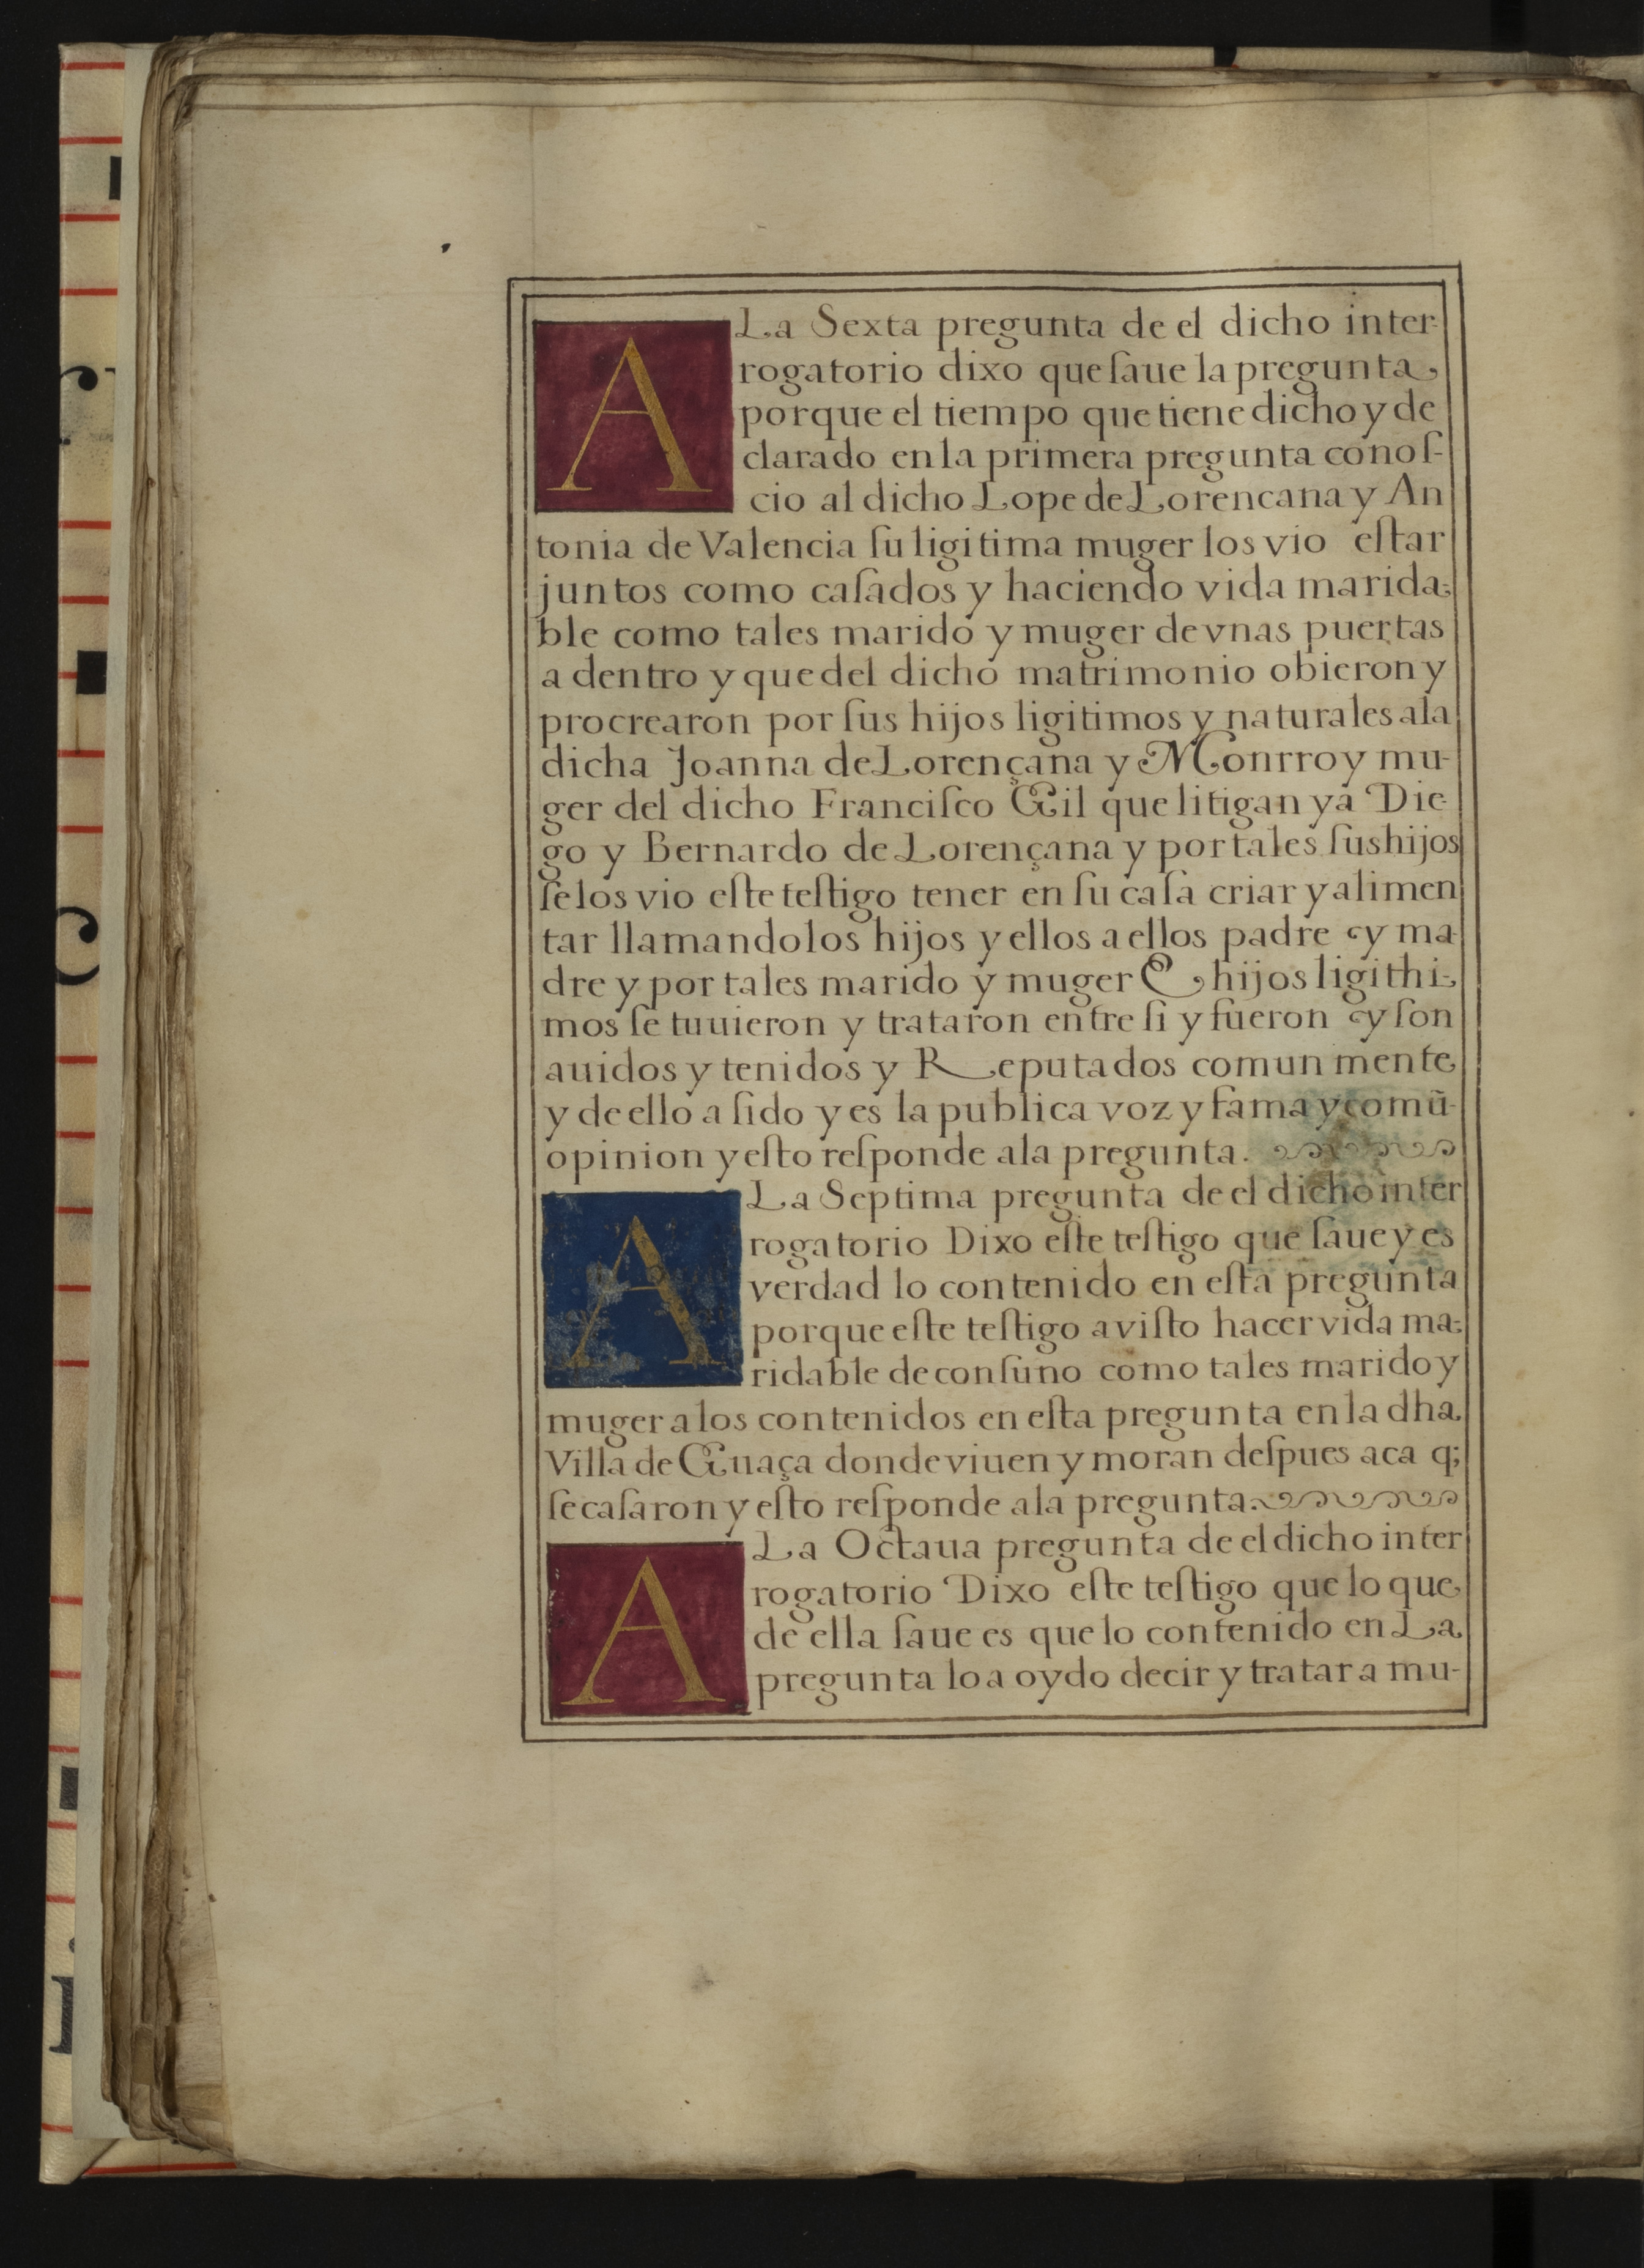 A La Sexta pregunta de el dicho inter-
rogatorio dixo que ſaue la pregunta
porque el tiempo que tiene dicho y de
clarado en la primera pregunta conoſ-
cio al dicho Lope de Lorencana y An
tonia de Valencia ſu ligitima muger los vio eſtar
juntos como caſados y haciendo vida marida-
ble como tales marido y muger de vnas puertas
a dentro y que del dicho matrimonio obieron y
procrearon por ſus hijos ligitimos y naturales ala
dicha Joanna de Lorençana y Monrroy mu-
ger del dicho Franciſco Gil que litigan y a Die-
go y Bernardo de Lorençana y por tales ſus hijos
ſe los vio eſte teſtigo tener en ſu caſa criar y alimen
tar llamandolos hijos y ellos a ellos padre y ma
dre y por tales marido y muger E hijos ligithi-
mos ſe tuuieron y trataron entre ſi y fueron y ſon
auidos y tenidos y Reputados comun mente
y de ello a ſido y es la publica voz y fama y comũ-
opinion y eſto reſponde ala pregunta.
A La Septima pregunta de el dicho inter
rogatorio Dixo eſte teſtigo que ſaue y es
verdad lo contenido en eſta pregunta
porque eſte teſtigo a viſto hacer vida ma-
ridable de conſuno como tales marido y
muger a los contenidos en eſta pregunta en la dha
Villa de Guaça donde viuen y moran deſpues aca q;
ſe caſaron y eſto reſponde ala pregunta.
A La Octaua pregunta de el dicho inter
rogatorio Dixo eſte teſtigo que lo que
de ella ſaue es que lo contenido en La
pregunta lo a oydo decir y tratar a mu-